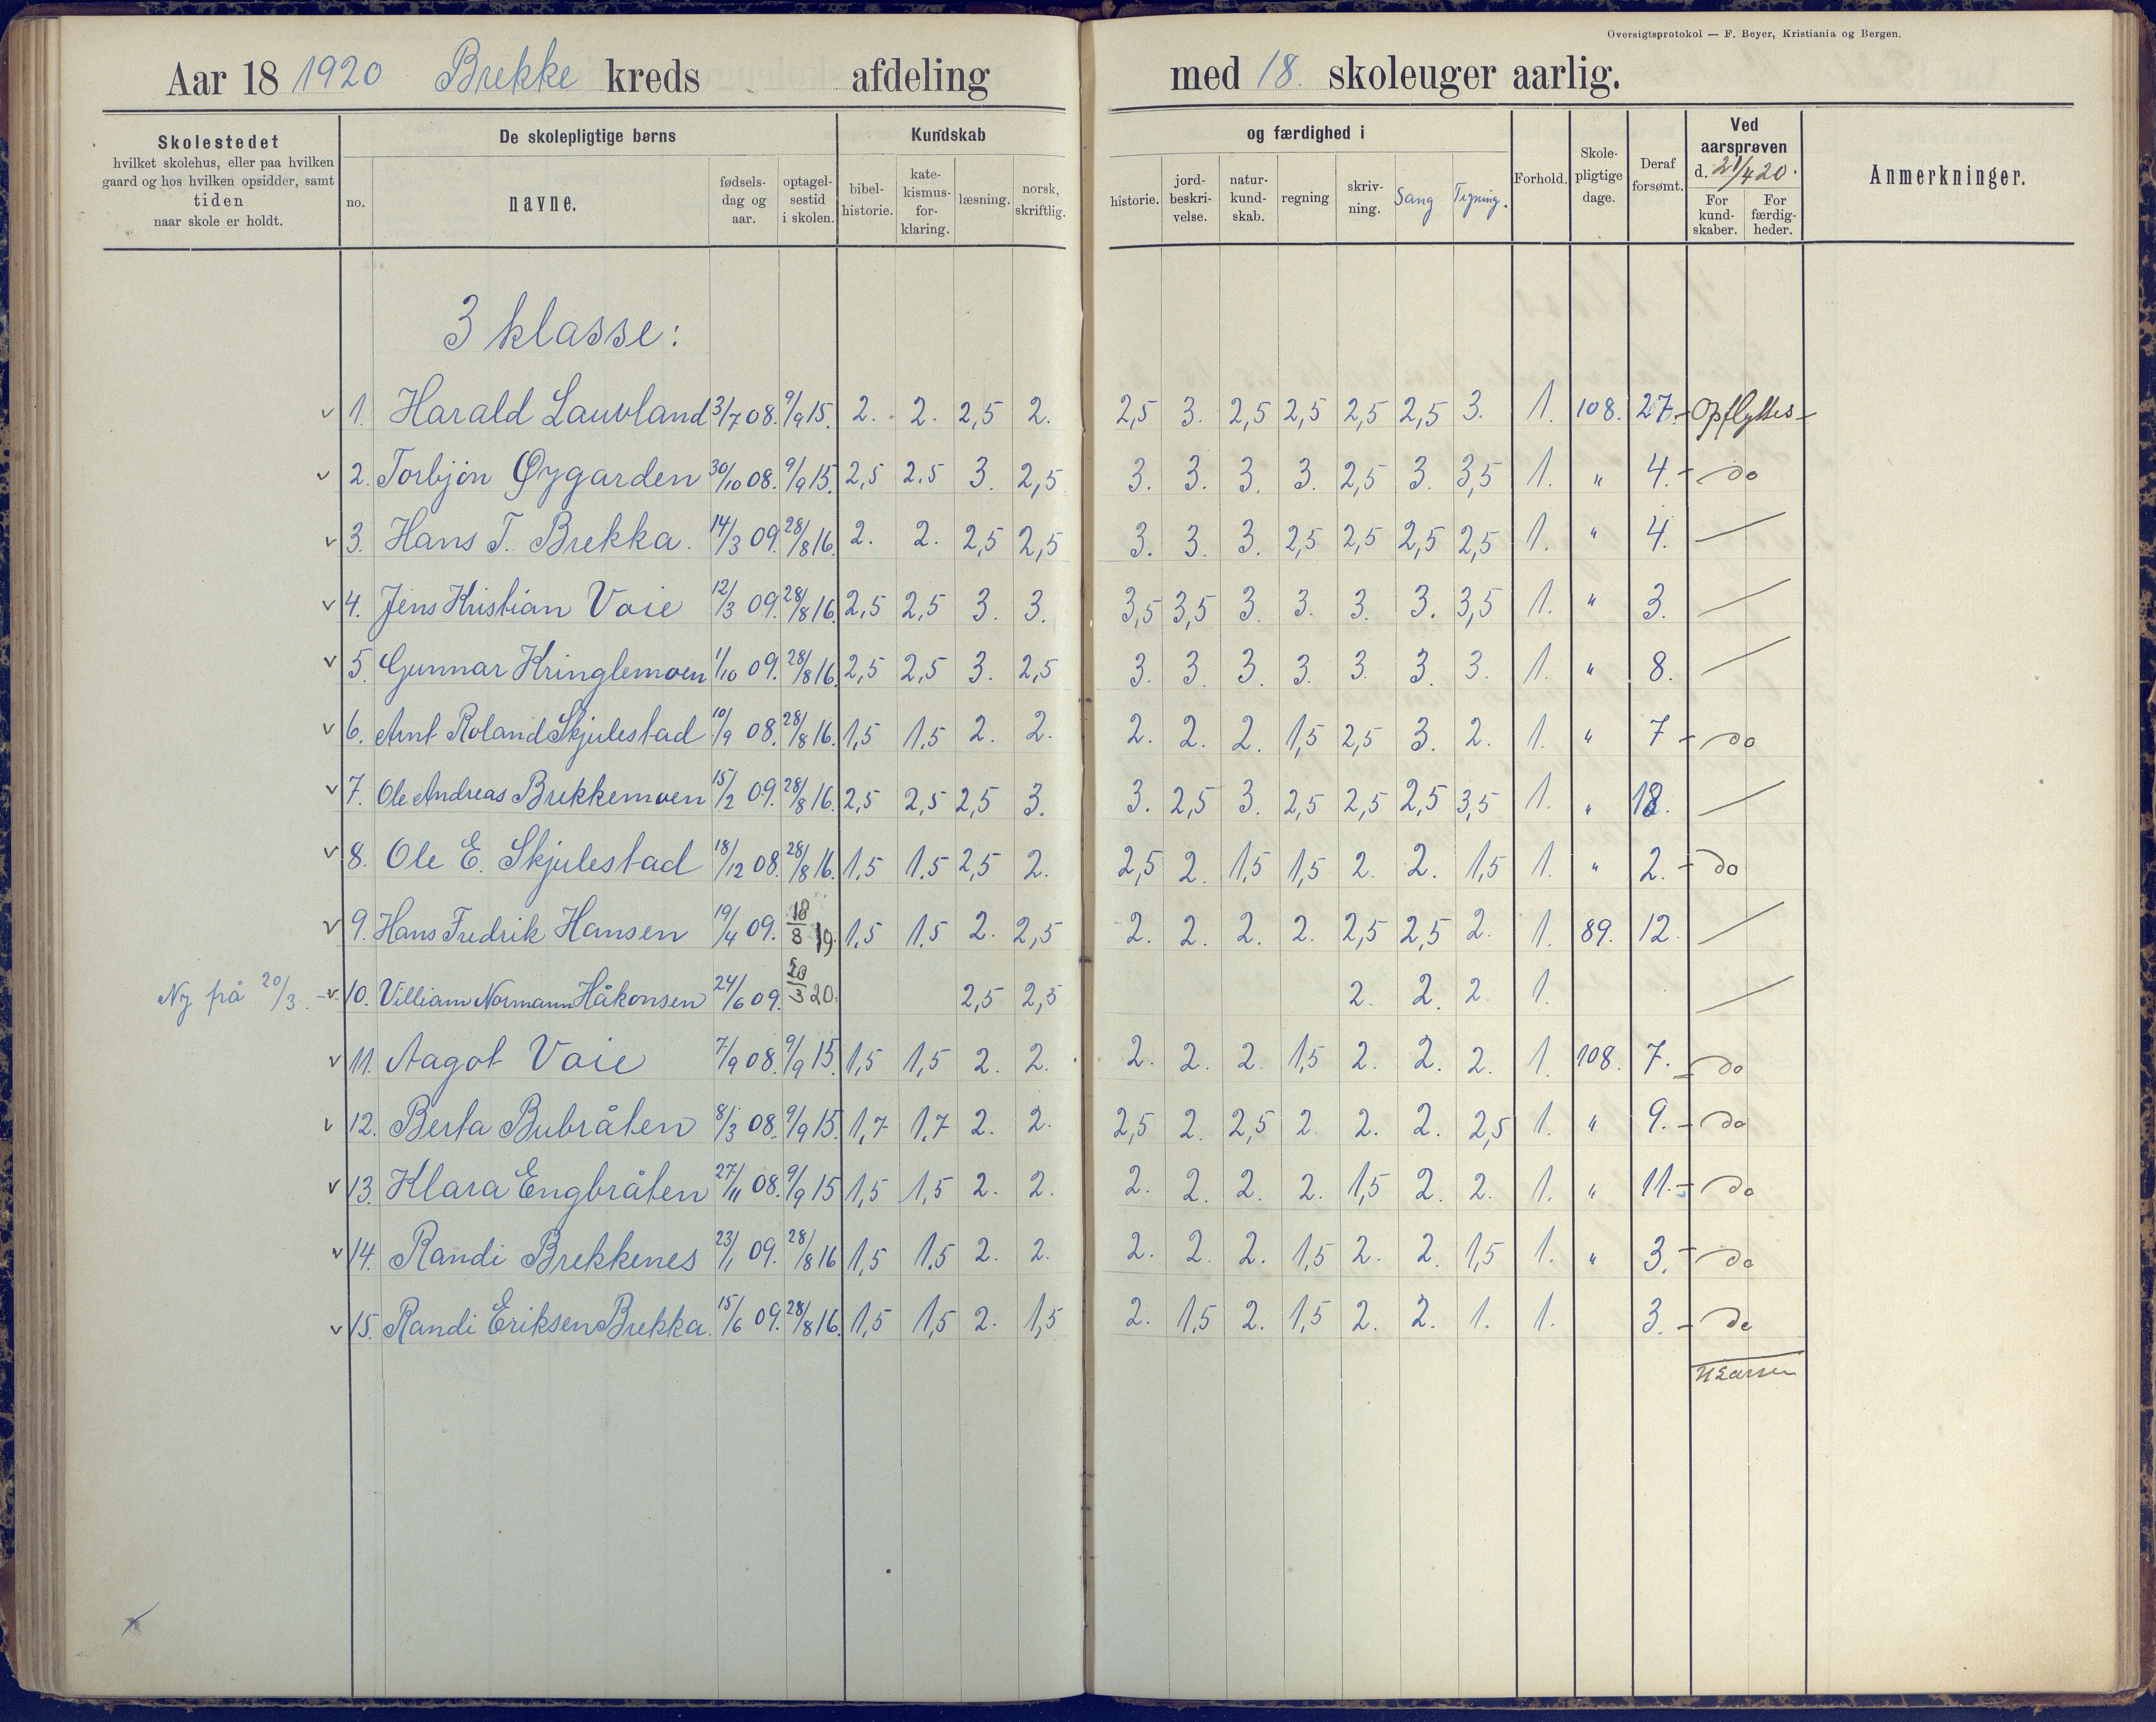 Oversigtsprotokol — F. Beyer, Kristiania og Bergen.
Aar 18 1920 Brekke kreds afdeling med 18. skoleuger aarlig.
Skolestedet
hvilket skolehus, eller paa hvilken
gaard og hos hvilken opsidder, samt
tiden
naar skole er holdt.
De skolepligtige børns
no.
navne.
fødsels-
dag og
aar.
optagel-
sestid
i skolen.
Kundskab
bibel-
historie.
kate-
kismus-
for-
klaring.
læsning.
norsk,
skriftlig.
og færdighed i
historie.
jord-
beskri-
velse.
natur-
kund-
skab.
regning
skriv-
ning.
Sang
Tegning.
Forhold.
Skole-
pligtige
dage.
Deraf
forsømt.
Ved
aarsprøven
d. 21/4 20.
For
kund-
skaber.
For
færdig-
heder.
Anmerkninger.
3 klasse:
v 1. Harald Lauvland 3/7 08. 9/9 15. 2. 2. 2,5 2. 2,5 3. 2,5 2,5 2,5 2,5 3. 1. 108. 27. - Opflyttes -
v 2. Torbjøn Øygarden 30/10 08. 9/9 15. 2,5 2,5 3. 2,5. 3. 3. 3. 3. 2,5 3. 3,5 1. " 4. - do
v 3. Hans T. Brekka. 14/3 09. 28/8 16. 2. 2. 2,5 2,5 3. 3. 3. 2,5 2,5 2,5 2,5 1. " 4. —
v 4. Jens Kristian Vaie 12/3 09. 28/8 16. 2,5 2,5 3. 3. 3,5 3,5 3. 3. 3. 3. 3,5 1. " 3. —
v 5. Gunnar Kringlemoen 1/10 09. 28/8 16. 2,5 2,5 3. 2,5 3. 3. 3. 3. 3. 3. 3. 1. " 8. —
v 6. Arnt Roland Skjulestad 10/9 08. 28/8 16. 1,5 1,5 2. 2. 2. 2. 2. 1,5 2,5 3. 2. 1. " 7 - do
v 7. Ole Andreas Brekkemoen 15/2 09. 28/8 16. 2,5 2,5 2,5 3. 3. 2,5 3. 2,5 2,5 2,5 3,5 1. " 18. —
v 8. Ole E. Skjulestad 18/12 08. 28/8 16. 1,5 1.5 2,5 2. 2,5 2. 1,5 1,5 2. 2. 1,5 1. " 2. - do
v 9. Hans Fredrik Hansen 19/4 09. 18/8 19. 1,5 1.5 2. 2,5 2. 2. 2. 2. 2,5 2,5 2. 1. 89. 12. —
Ny frå 20/3. - v 10. Villiam Normann Håkonsen 24/6 09. 20/3 20. 2,5 2,5 2. 2. 2. 1. —
v 11. Aagot Vaie 7/9 08. 9/9 15. 1,5 1,5 2. 2. 2. 2. 2. 1,5 2. 2. 2. 1. 108. 7. - do
v 12. Berta Bubråten 8/3 08. 9/9 15. 1,7 1.7 2. 2. 2,5 2. 2,5 2. 2. 2. 2,5 1. " 9. - do
v 13. Klara Engbråten 27/11 08. 9/9 15 1,5 1,5 2. 2. 2. 2. 2. 2. 1,5 2. 2. 1. " 11. - do
v 14. Randi Brekkenes 23/1 09. 28/8 16 1,5 1.5 2. 2. 2. 2. 2. 1,5 2. 2. 1,5 1. " 3. - do
v 15. Randi Eriksen Brekka. 15/6 09. 28/8 16. 1,5 1,5 2. 1,5 2. 1,5 2. 1,5 2. 2. 1. 1. 3. - do